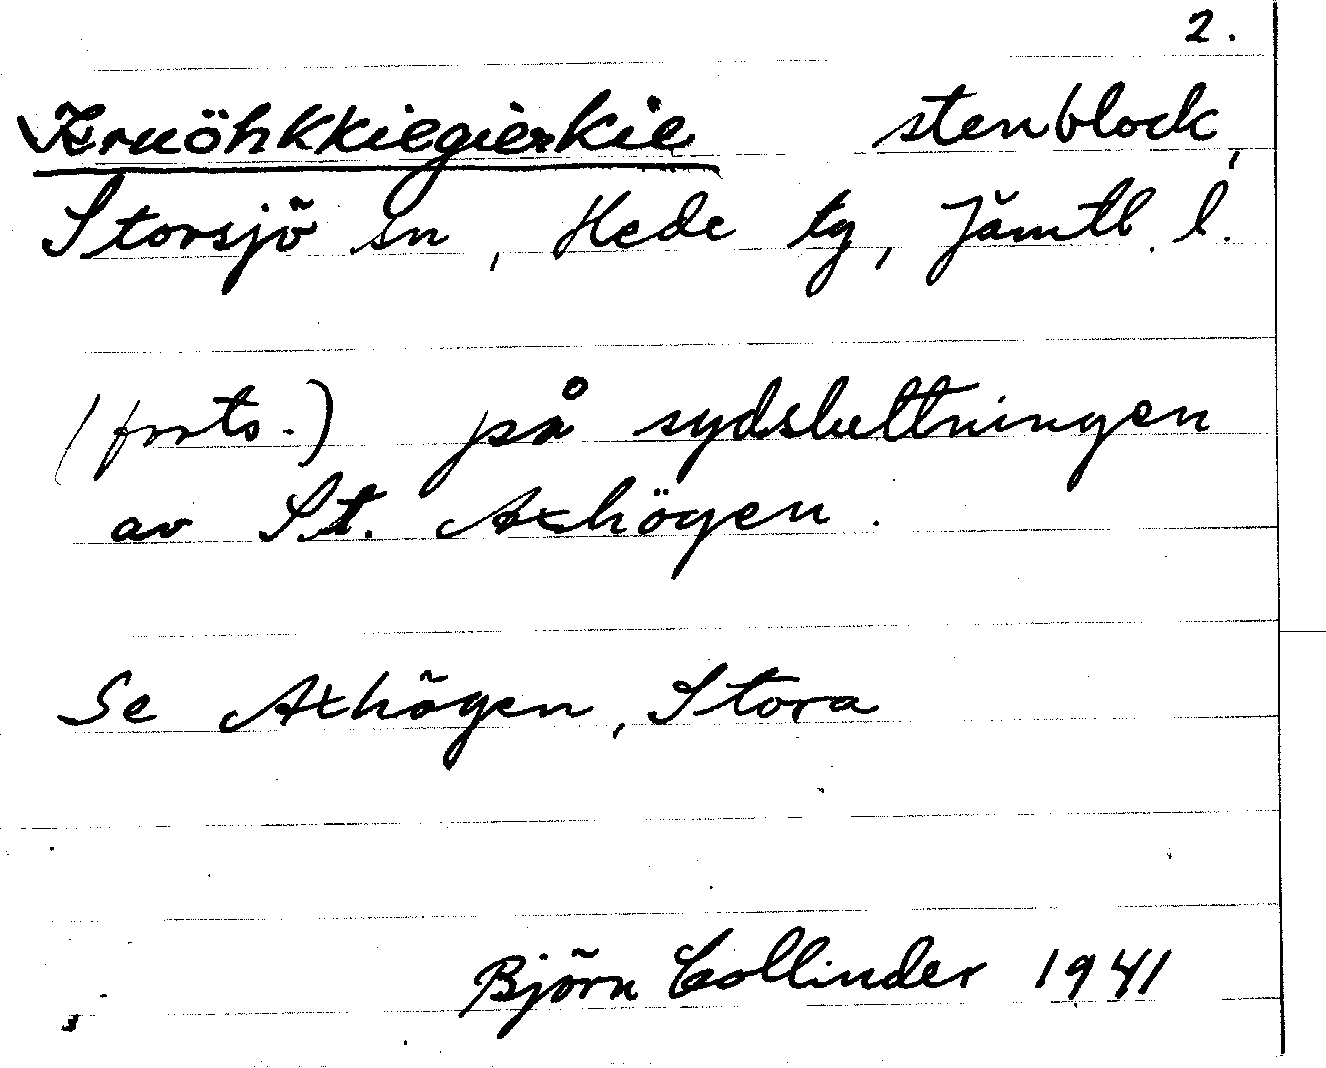 2.
Kruöhkkiegièrkie stenblock,
Storsjö sn, Hede tg, Jämtl. l.
(forts.) på sydsluttningen
av St. Axhögen.
Se Axhögen, Stora
Björn Collinder 1941